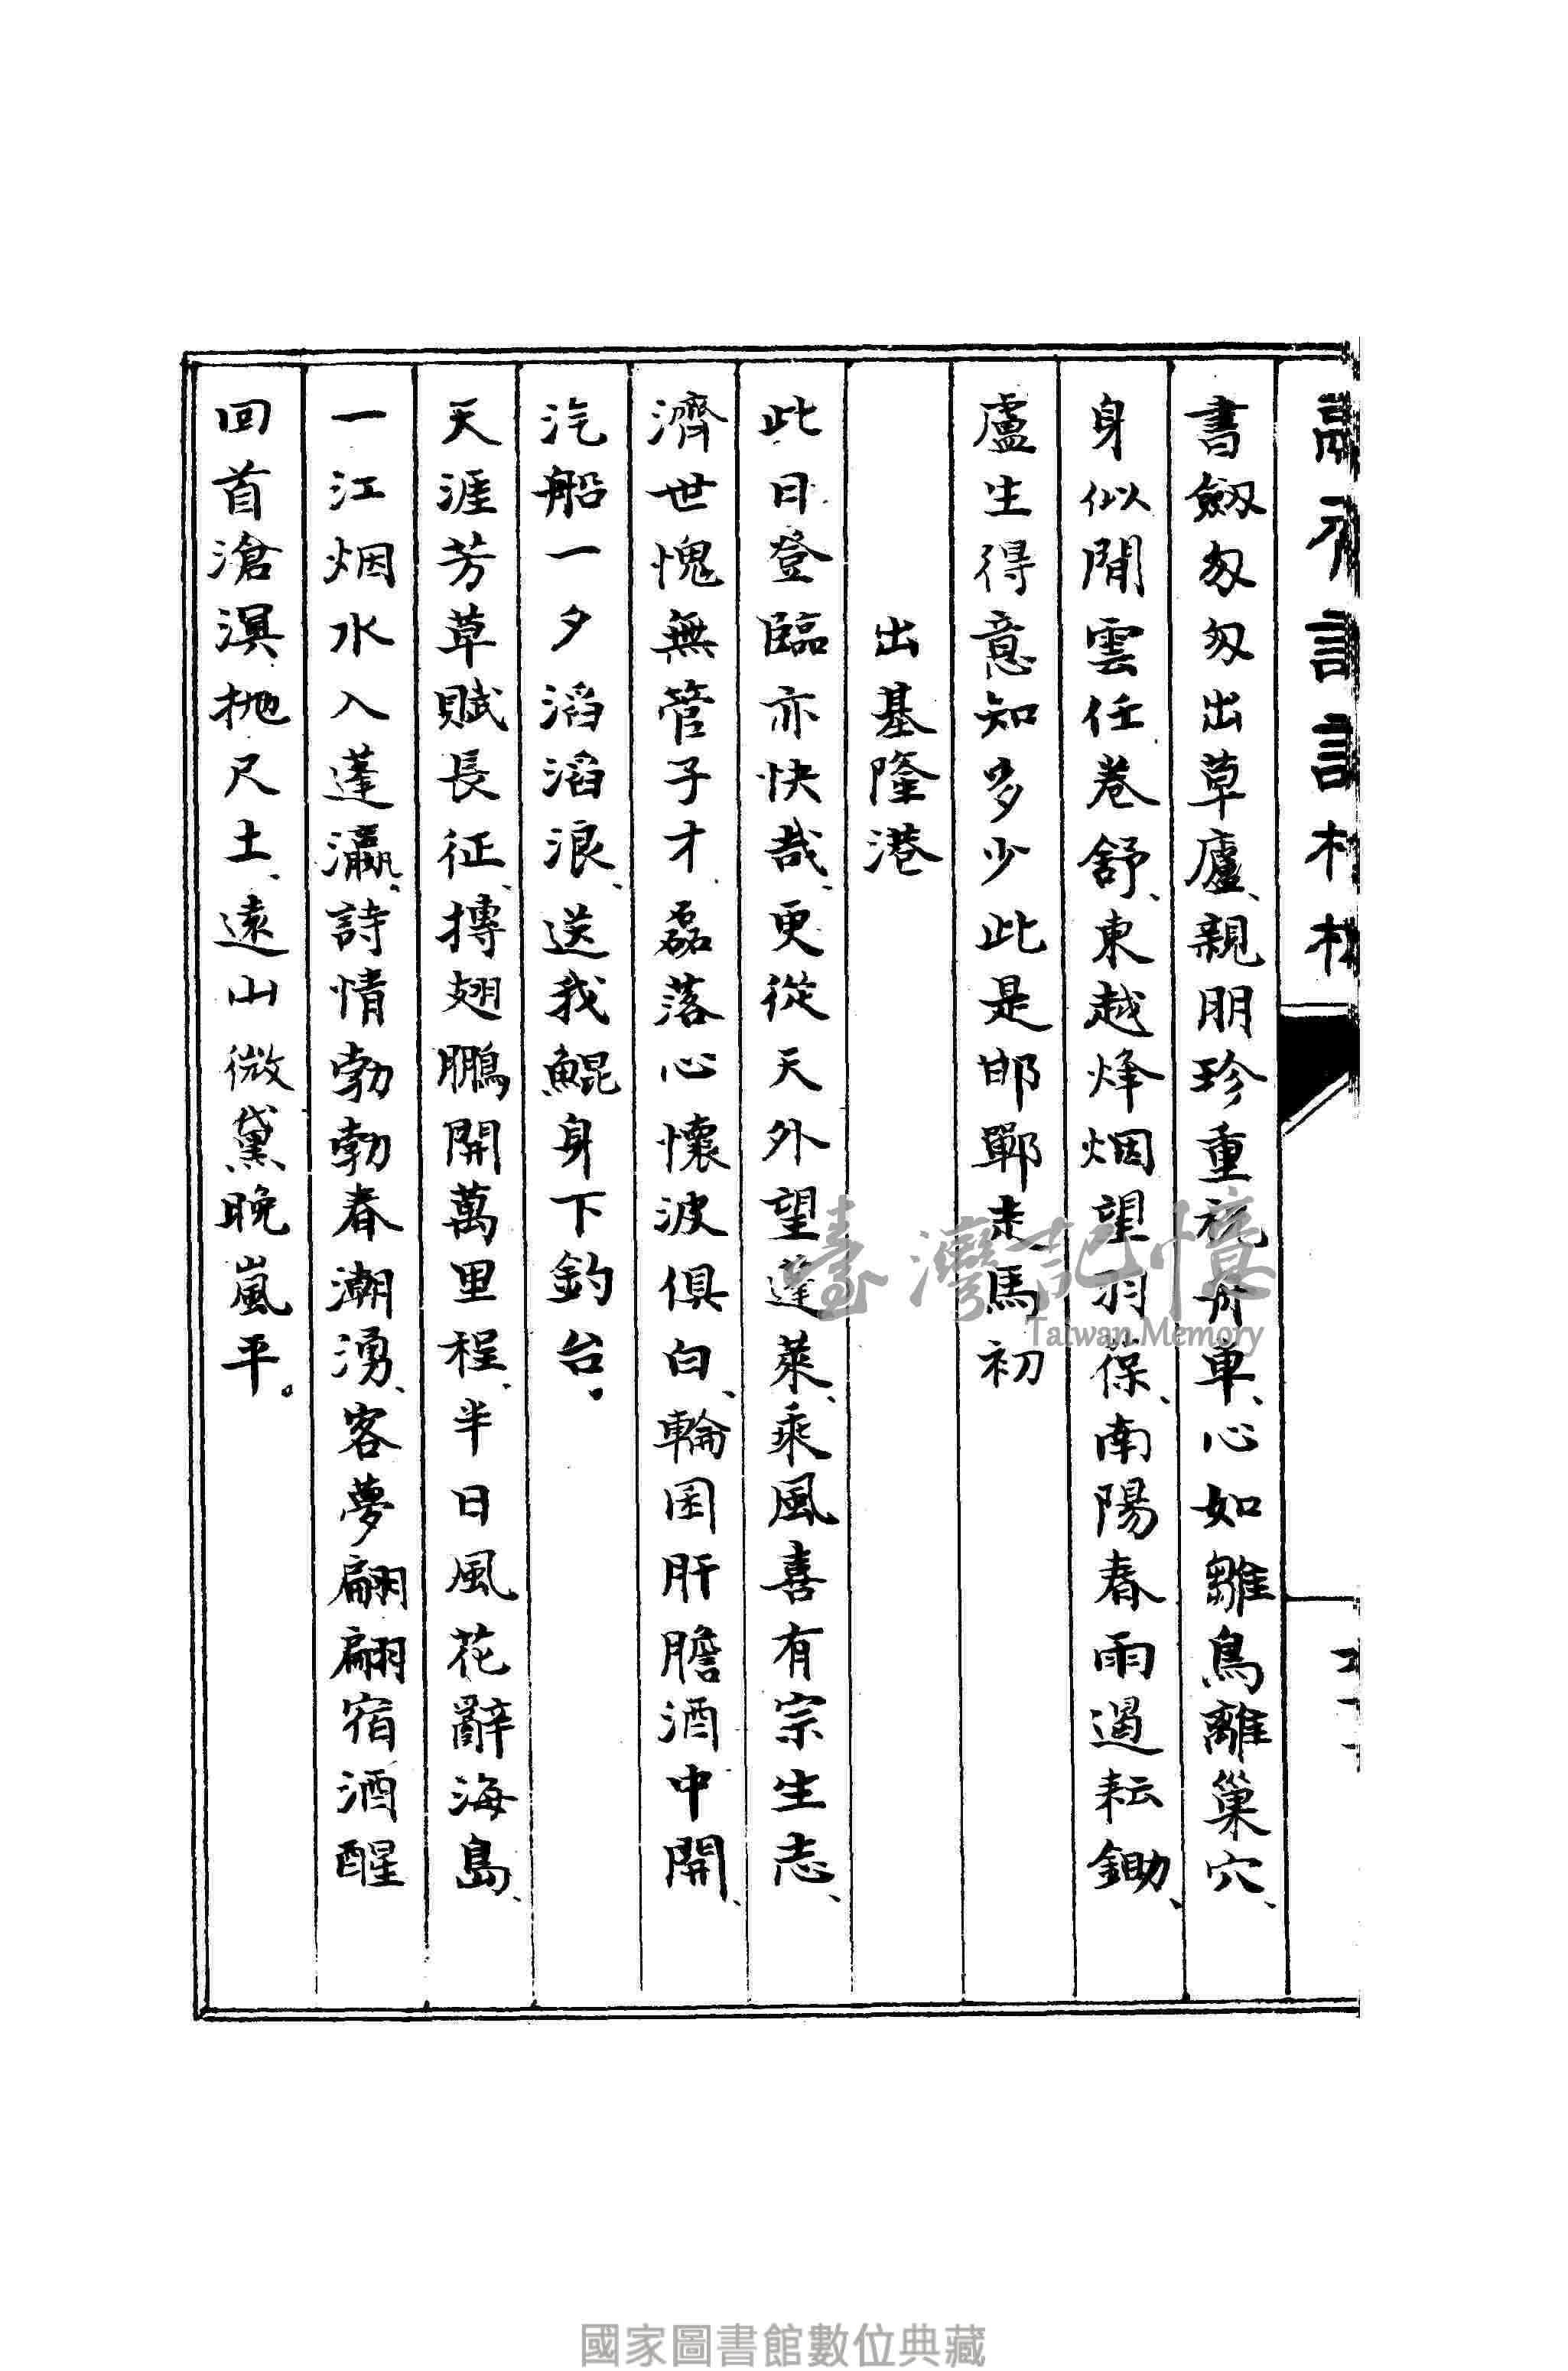 書劔匆匆出草廬、親朋珍重祝舟車、心如雛鳥離巢穴、
身似閒雲任卷舒、東越烽烟望羽葆、南陽春雨過耘鋤、
盧生得意知多少此是邯鄲走馬初
出基隆港
此日登臨亦快哉、更從天外望蓬萊、乘風喜有宗生志、
濟世愧無管子才、磊落心懷波俱白、輪囷肝膽酒中開、
汽船一夕滔滔浪、送我鯤身下釣台、
天涯芳草賦長征、摶翅鵬開萬里程、半日風花辭海島、
一江烟水入蓬瀛、詩情勃勃春潮湧、客夢翩翩宿酒醒
回首滄溟拋尺土、遠山微黛晚嵐平。
臺灣記憶
Taiwan Memory
國家圖書館數位典藏